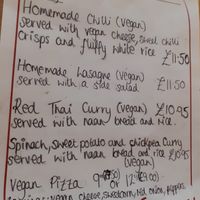 Homemade Chilli (vegan)
served with vegan cheese, sweet chilli
crisps and fluffy white rice £11.50
Homemade Lasagne (vegan)
served with a side salad £11.50
Red Thai Curry (vegan) £10.95
served with naan bread and rice.
Spinach, sweet potato and chickpea Curry
served with naan bread and rice £10.95
(vegan)
Vegan Pizza 9" or 12"
vegan cheese, sweetcorn, red onion, peppers